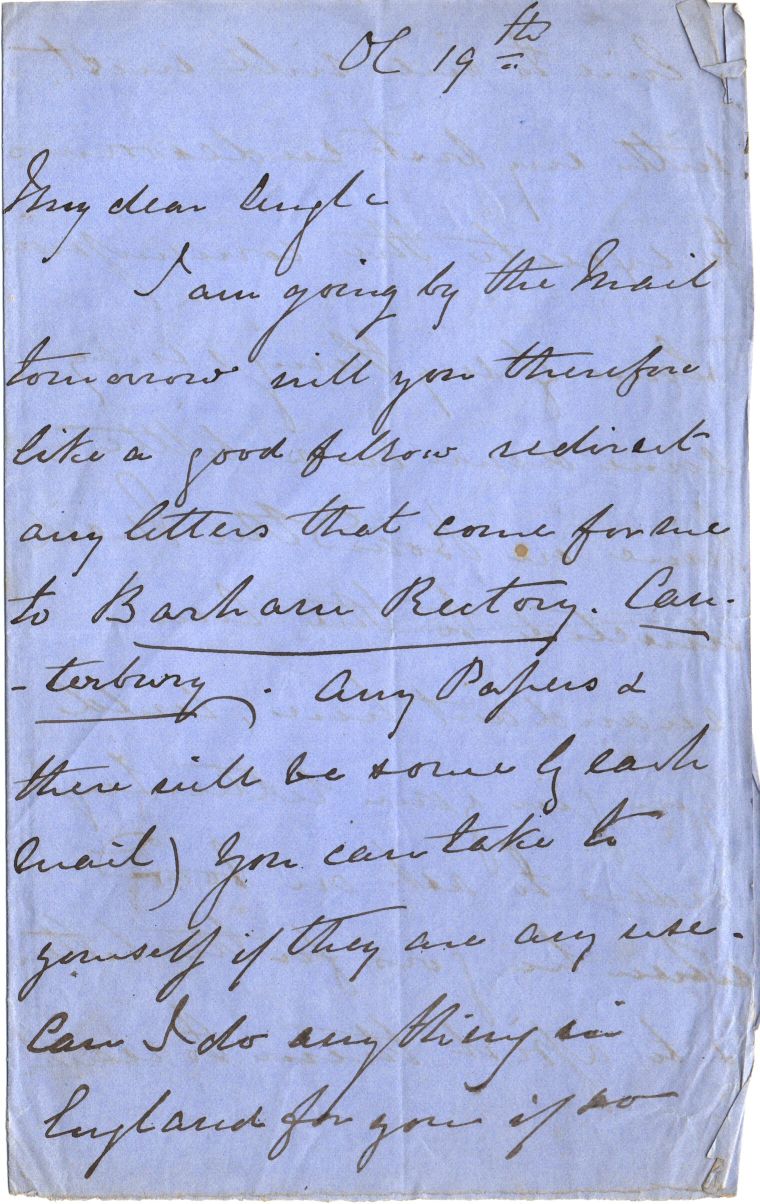 Oc 19th
My dear Engle
I am going by the Mail
tomorrow will you therefore
like a good fellow redirect
any letters that come for me
to Barham Rectory. Can-
-terbury. Any Papers &
there will be some by each
mail) you can take to
yourself if they are any use-
Can I do anything in
England for you if so